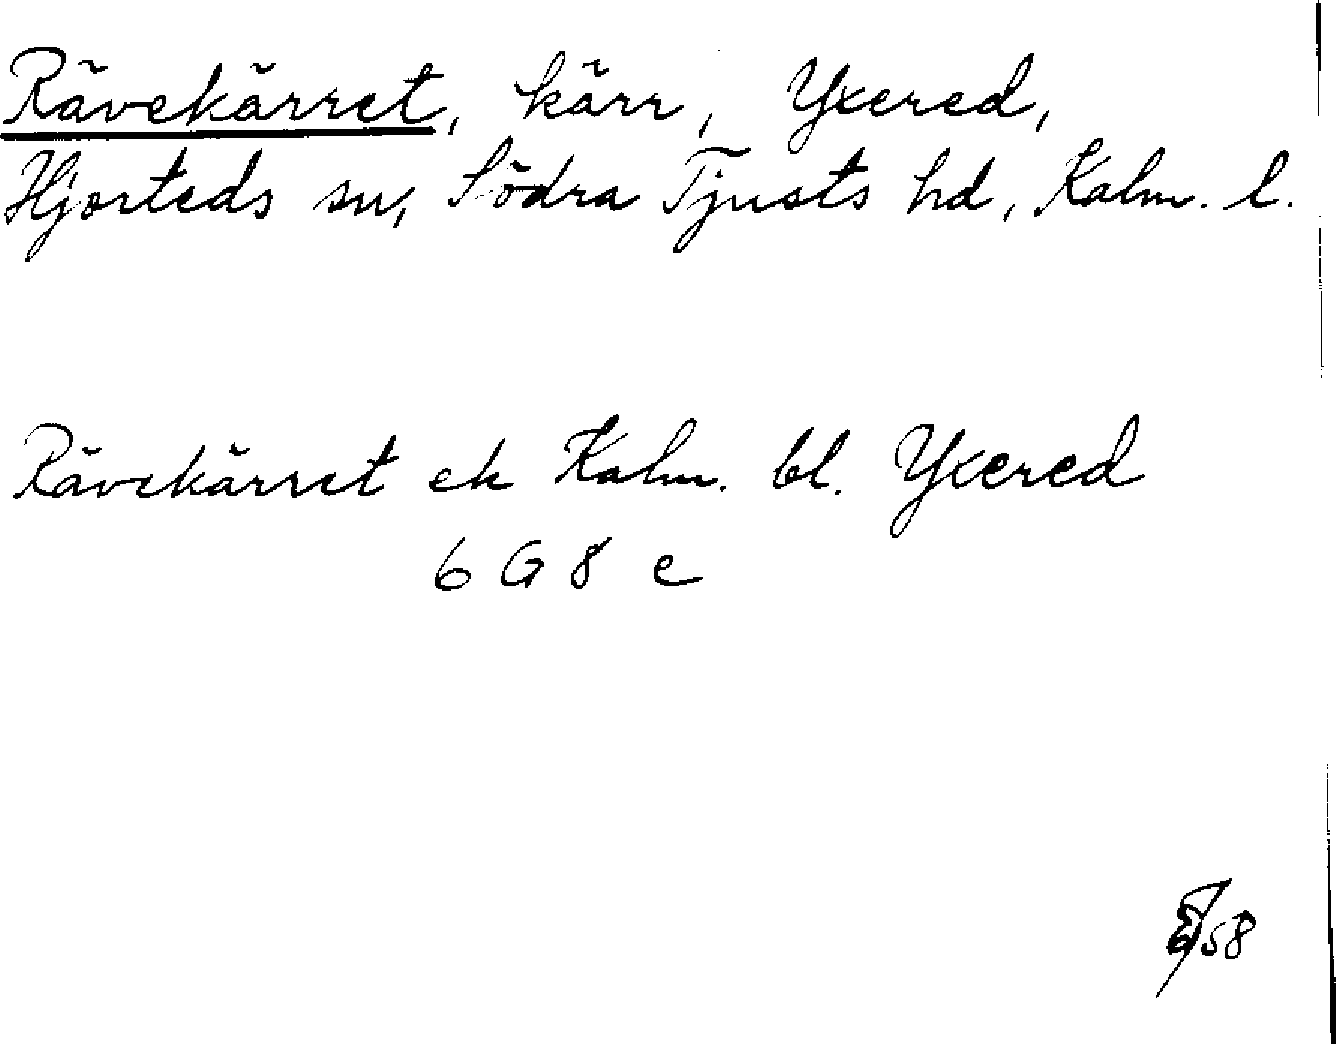 Rävekärret, kärr, Yxered,
Hjorteds sn, Södra Tjusts hd, Kalm. l.
Rävekärret ek Kalm. bl. Yxered
6 G 8 e
58